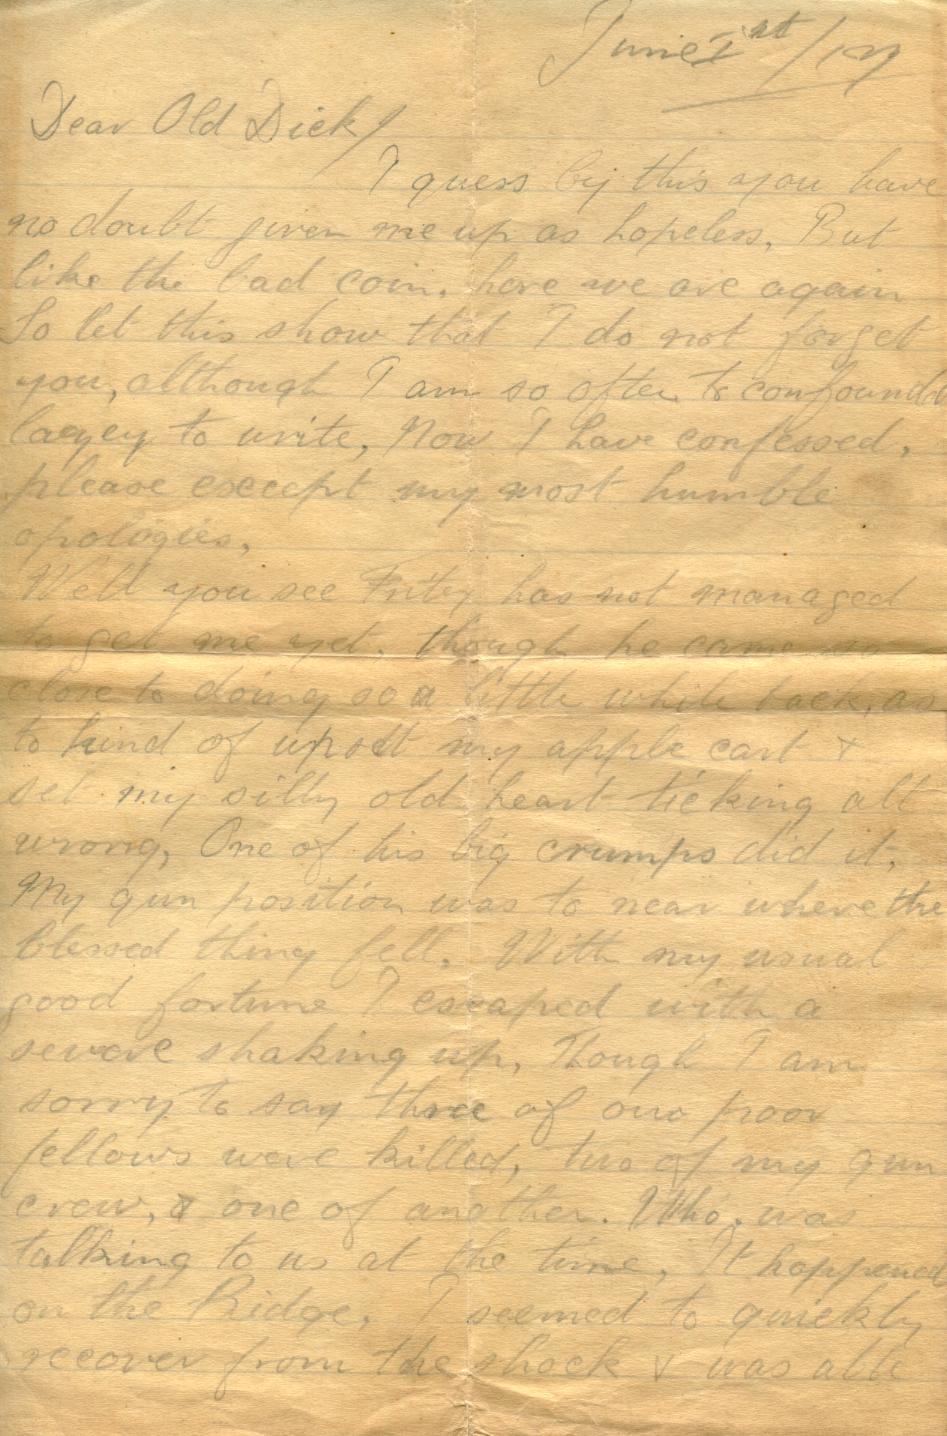 June 1st/17
Dear Old Dick/
I guess by this you have
no doubt given me up as hopeless. But
like the bad coin. here we are again
So let this show that I do not forget
you, although I am so often to confounded
lazey to write. Now I have confessed.
please except my most humble
apologies.
Well you see Fritzy has not managed
to get me yet. though he came so
close to doing so a little while back, as
to kind of upsett my apple cart &
set my silly old heart ticking all
wrong, One of his big crumps did it.
My gun position was to near where the
blessed thing fell. With my usual
good fortune I escaped with a
severe shaking up. Though I am
sorry to say three of our poor
fellows were killed, two of my gun
crew, & one of another. Who, was
talking to us at the time, It happened
on the Ridge. I seemed to quickly
recover from the shock & was able